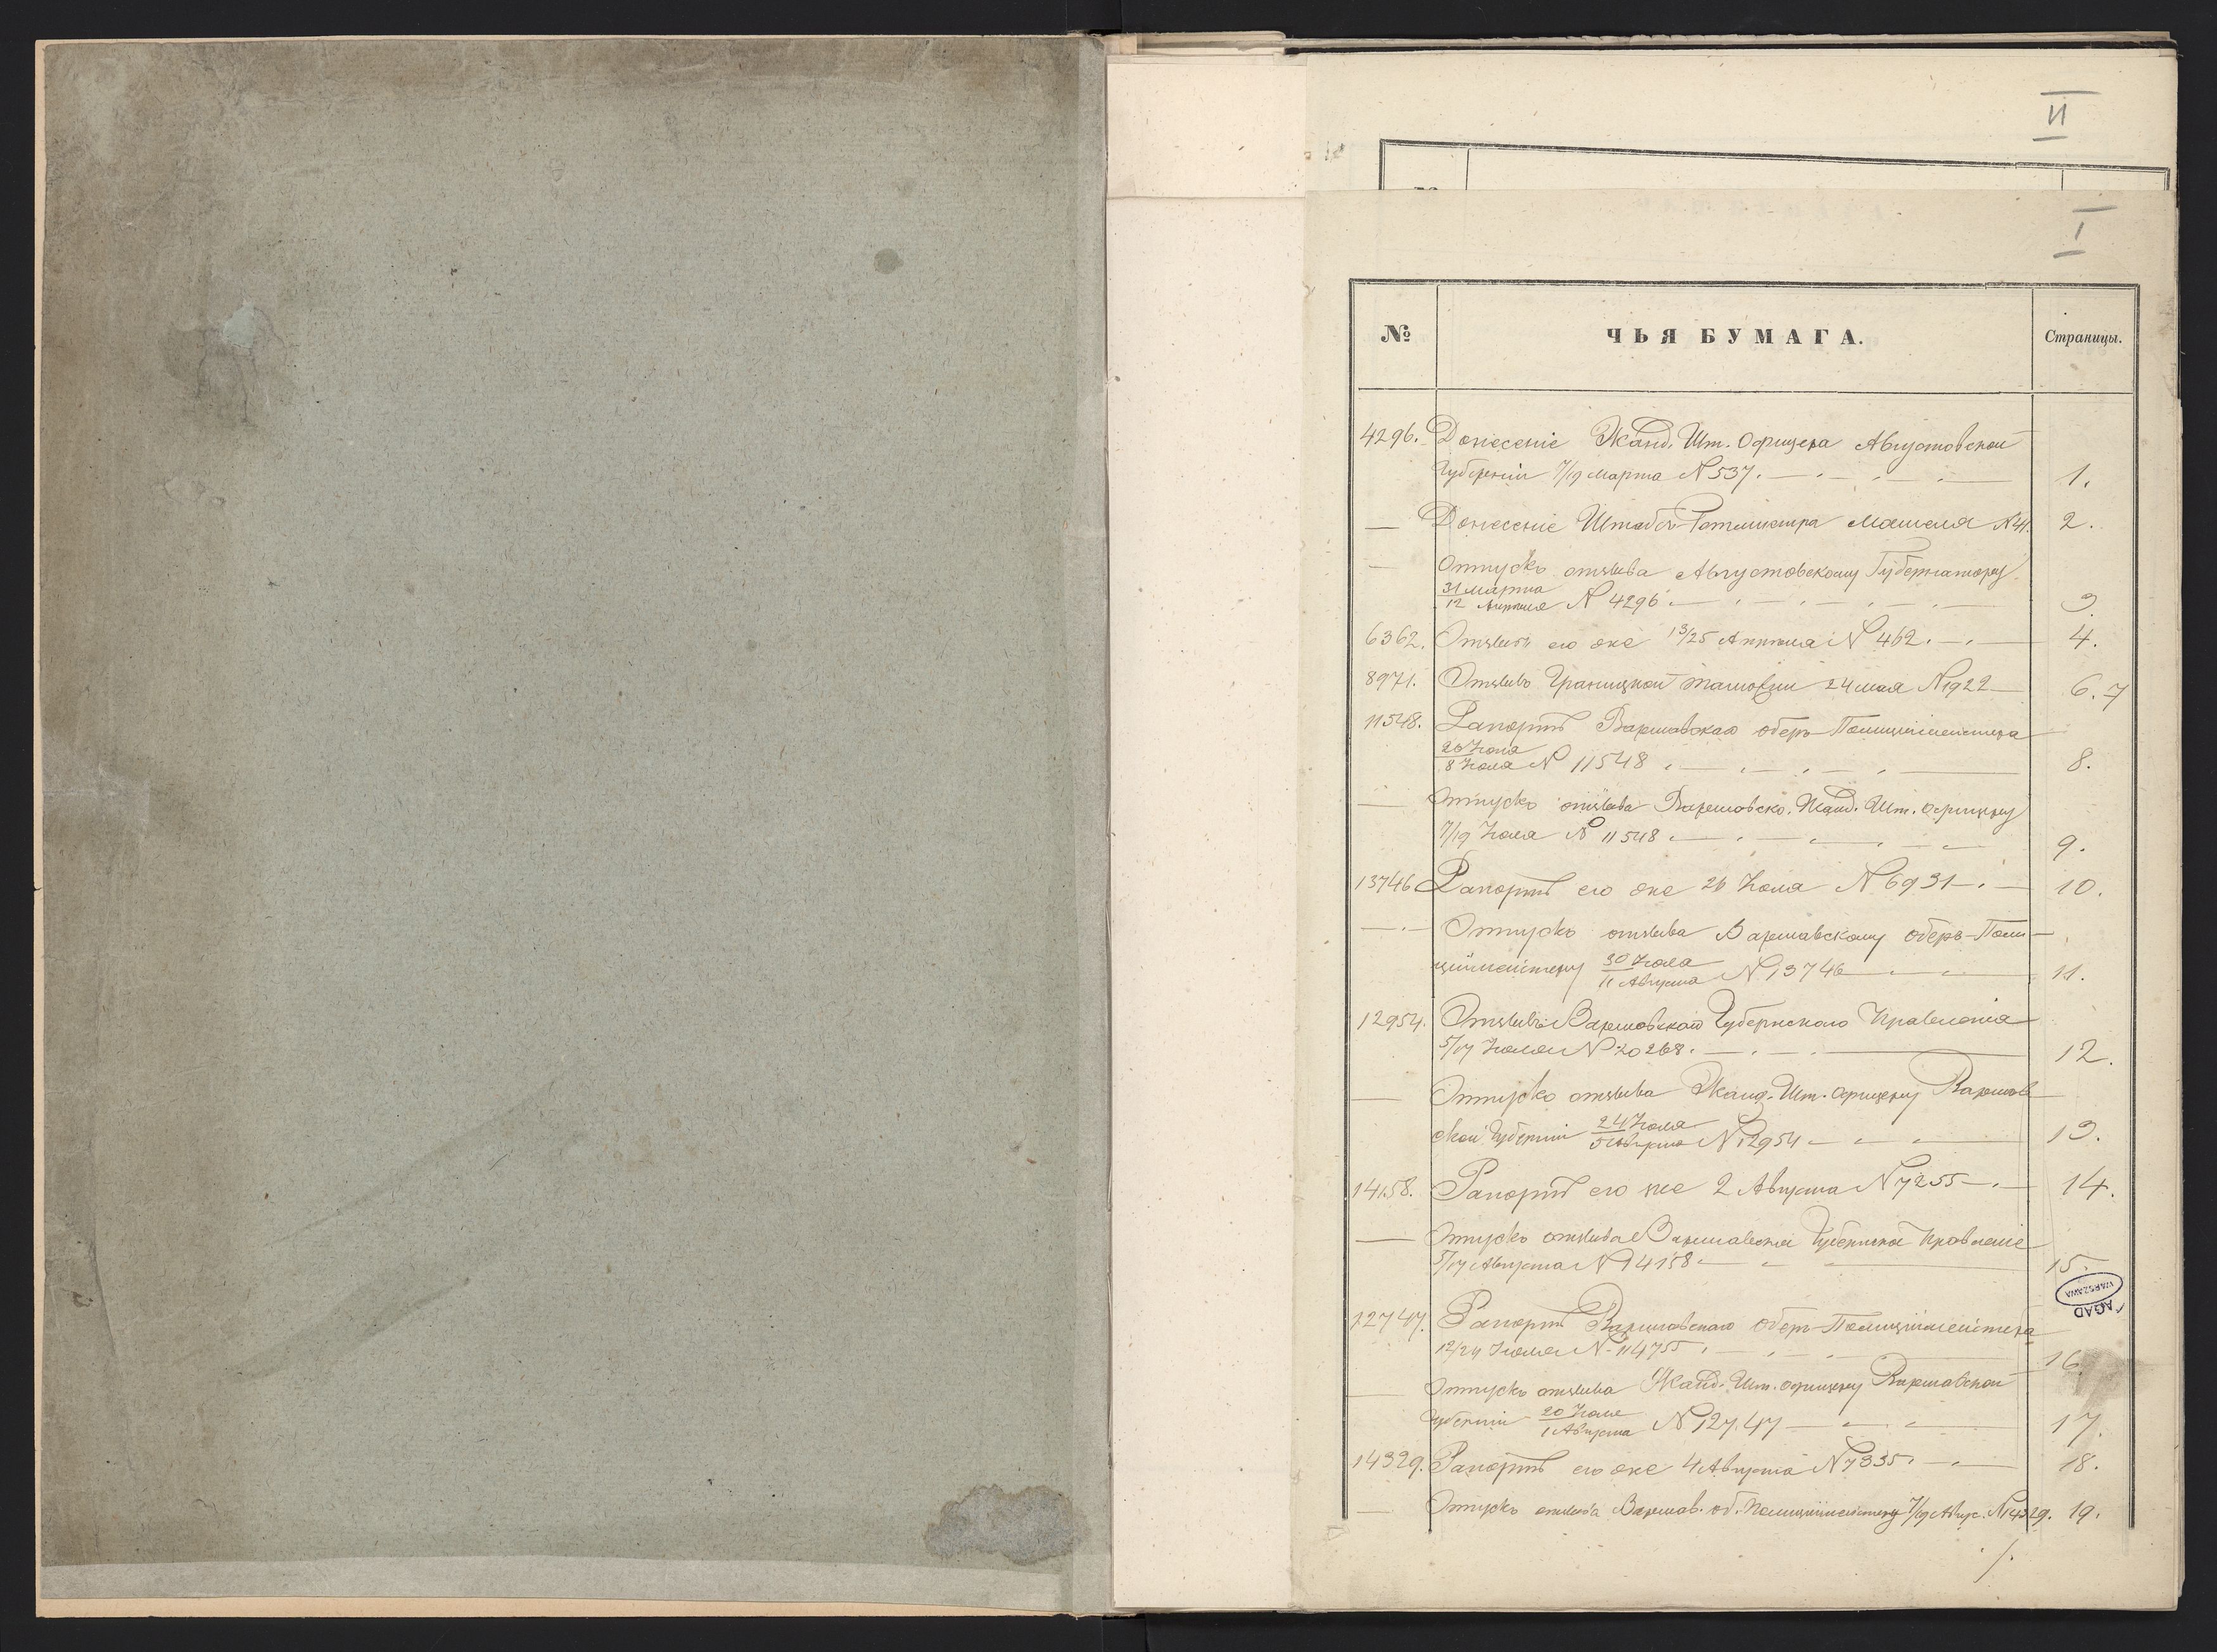 II
I
№ ЧЬЯ БУМАГА. Страницы.
4296. Донесеніе Жанд. Шт. Офицера Августовской
Губерніи 7/19 Марта N 537. 1.
— Донесеніе Штабсъ-Ротмистра N 41. 2.
— Отпускъ отзыва Августовскому Губернатору
31 Марта / 12 Апреля N 4296 3.
6362. Отзывъ его же 13/25 Апреля N 462. 4.
8971. Отзывъ Границкой Таможни 24 мая N 1922 6. 7
11548. Рапортъ Варшавскаго Оберъ-Полиціймейстера
26 Іюня / 8 Іюля N 11548 8.
— Отпускъ отзыва Варшавско. Жанд. Шт. Офицеру
7/19 Іюля N 11548 9.
13746 Рапортъ его же 26 Іюля N 6931 10.
— Отпускъ отзыва Варшавскому Оберъ-Поли-
ціймейстеру 30 Іюля / 11 Августа N 13746 11.
12954. Отзывъ Варшавскаго Губернскаго Правленія
5/17 Іюля N 20268. 12.
— Отпускъ отзыва Жанд. Шт. Офицеру Варшав-
ской Губерніи 24 Іюля / 5 Августа N 12954 13.
14158. Рапортъ его же 2 Августа N 7255 14.
— Отпускъ отзыва Варшавское Губернское Правленіе
5/17 Августа N 14158 15.
AGAD
WARSZAWA
12747. Рапортъ Варшавскаго Оберъ-Полиціймейстера
12/24 Іюля N 114755 16.
— Отпускъ отзыва Жанд. Шт. Офицеру Варшавской
Губерніи 20 Іюля / 1 Августа N 12747 17.
14329. Рапортъ его же 4 Августа N 7335. 18.
— Отпускъ отзыва Варшав. Об. Полиціймейстеру 7/19 Авгус. N 14329. 19.